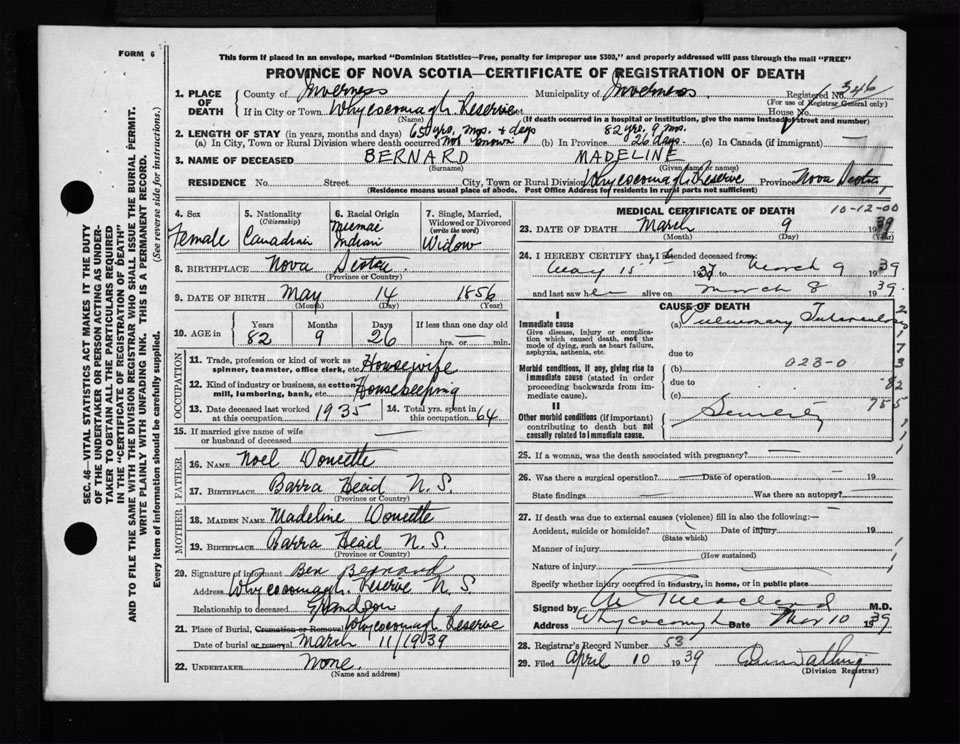 FORM 6
This form if placed in an envelope, marked "Dominion Statistics—Free, penalty for improper use $300," and properly addressed will pass through the mail "FREE"
PROVINCE OF NOVA SCOTIA—CERTIFICATE OF REGISTRATION OF DEATH
SEC. 46—VITAL STATISTICS ACT MAKES IT THE DUTY
OF THE UNDERTAKER OR PERSON ACTING AS UNDER-
TAKER TO OBTAIN ALL THE PARTICULARS REQUIRED
IN THE "CERTIFICATE OF REGISTRATION OF DEATH"
AND TO FILE THE SAME WITH THE DIVISION REGISTRAR WHO SHALL ISSUE THE BURIAL PERMIT.
WRITE PLAINLY WITH UNFADING INK. THIS IS A PERMANENT RECORD.
Every item of information should be carefully supplied. (See reverse side for instructions.)
1. PLACE OF DEATH
County of Inverness Municipality of Inverness Registered No. 346
(For use of Registrar General only)
If in City or Town Whycocomagh Reserve House No.
(Name) (If death occurred in a hospital or institution, give the name instead of street and number)
2. LENGTH OF STAY (in years, months and days) 65 yrs, mos. & days 82 yrs. 9 ms.
(a) In City, Town or Rural Division where death occurred not known (b) In Province 26 days. (c) In Canada (if immigrant)
3. NAME OF DECEASED BERNARD MADELINE
(Surname) (Given name or names)
RESIDENCE No. Street City, Town or Rural Division Whycocomagh Reserve Province Nova Scotia
(Residence means usual place of abode. Post Office Address for residents in rural parts not sufficient)
4. Sex
Female
5. Nationality
(Citizenship)
Canadian
6. Racial Origin
Micmac
Indian
7. Single, Married,
Widowed or Divorced
(write the word)
Widow
8. BIRTHPLACE Nova Scotia
(Province or Country)
9. DATE OF BIRTH May 14 1856
(Month) (Day) (Year)
10. AGE in
Years Months Days If less than one day old
82 9 26 hrs. or min.
OCCUPATION
11. Trade, profession or kind of work as
spinner, teamster, office clerk, etc. Housewife
12. Kind of industry or business, as cotton
mill, lumbering, bank, etc. Housekeeping
13. Date deceased last worked
at this occupation 1935
14. Total yrs. spent in
this occupation 64
15. If married give name of wife
or husband of deceased —
FATHER
16. Name Noel Doucette
17. Birthplace Barra Head N.S.
(Province or Country)
MOTHER
18. Maiden Name Madeline Doucette
19. Birthplace Barra Head N.S.
(Province or Country)
20. Signature of informant Ben Bernard
Address Whycocomagh Reserve N.S.
Relationship to deceased Grandson
21. Place of Burial, Cremation or Removal Whycocomagh Reserve
Date of burial or removal March 11/1939
22. Undertaker None.
MEDICAL CERTIFICATE OF DEATH 10-12-00
23. DATE OF DEATH March 9 1939
(Month) (Day) (Year)
24. I HEREBY CERTIFY that I attended deceased from
May 15 to March 9 1939
and last saw her alive on March 8 1939.
CAUSE OF DEATH
I
Immediate cause
Give disease, injury or complica-
tion which caused death, not the
mode of dying, such as heart failure,
asphyxia, asthenia, etc.
(a) Pulmonary Tuberculosis
due to
Morbid conditions, if any, giving rise to
immediate cause (stated in order
proceeding backwards from im-
mediate cause).
(b) 023-0
due to
(c)
II
Other morbid conditions (if important)
contributing to death but not
causally related to immediate cause.
Senility
25. If a woman, was the death associated with pregnancy? —
26. Was there a surgical operation? — Date of operation — 19
State findings — Was there an autopsy? —
27. If death was due to external causes (violence) fill in also the following:—
Accident, suicide or homicide? Date of injury 19
(State which)
Manner of injury
(How sustained)
Nature of injury
Specify whether injury occurred in industry, in home, or in public place
Signed by M.D.
Address Whycocomagh Date Mar 10 1939
28. Registrar's Record Number 53
29. Filed April 10 1939
(Division Registrar)